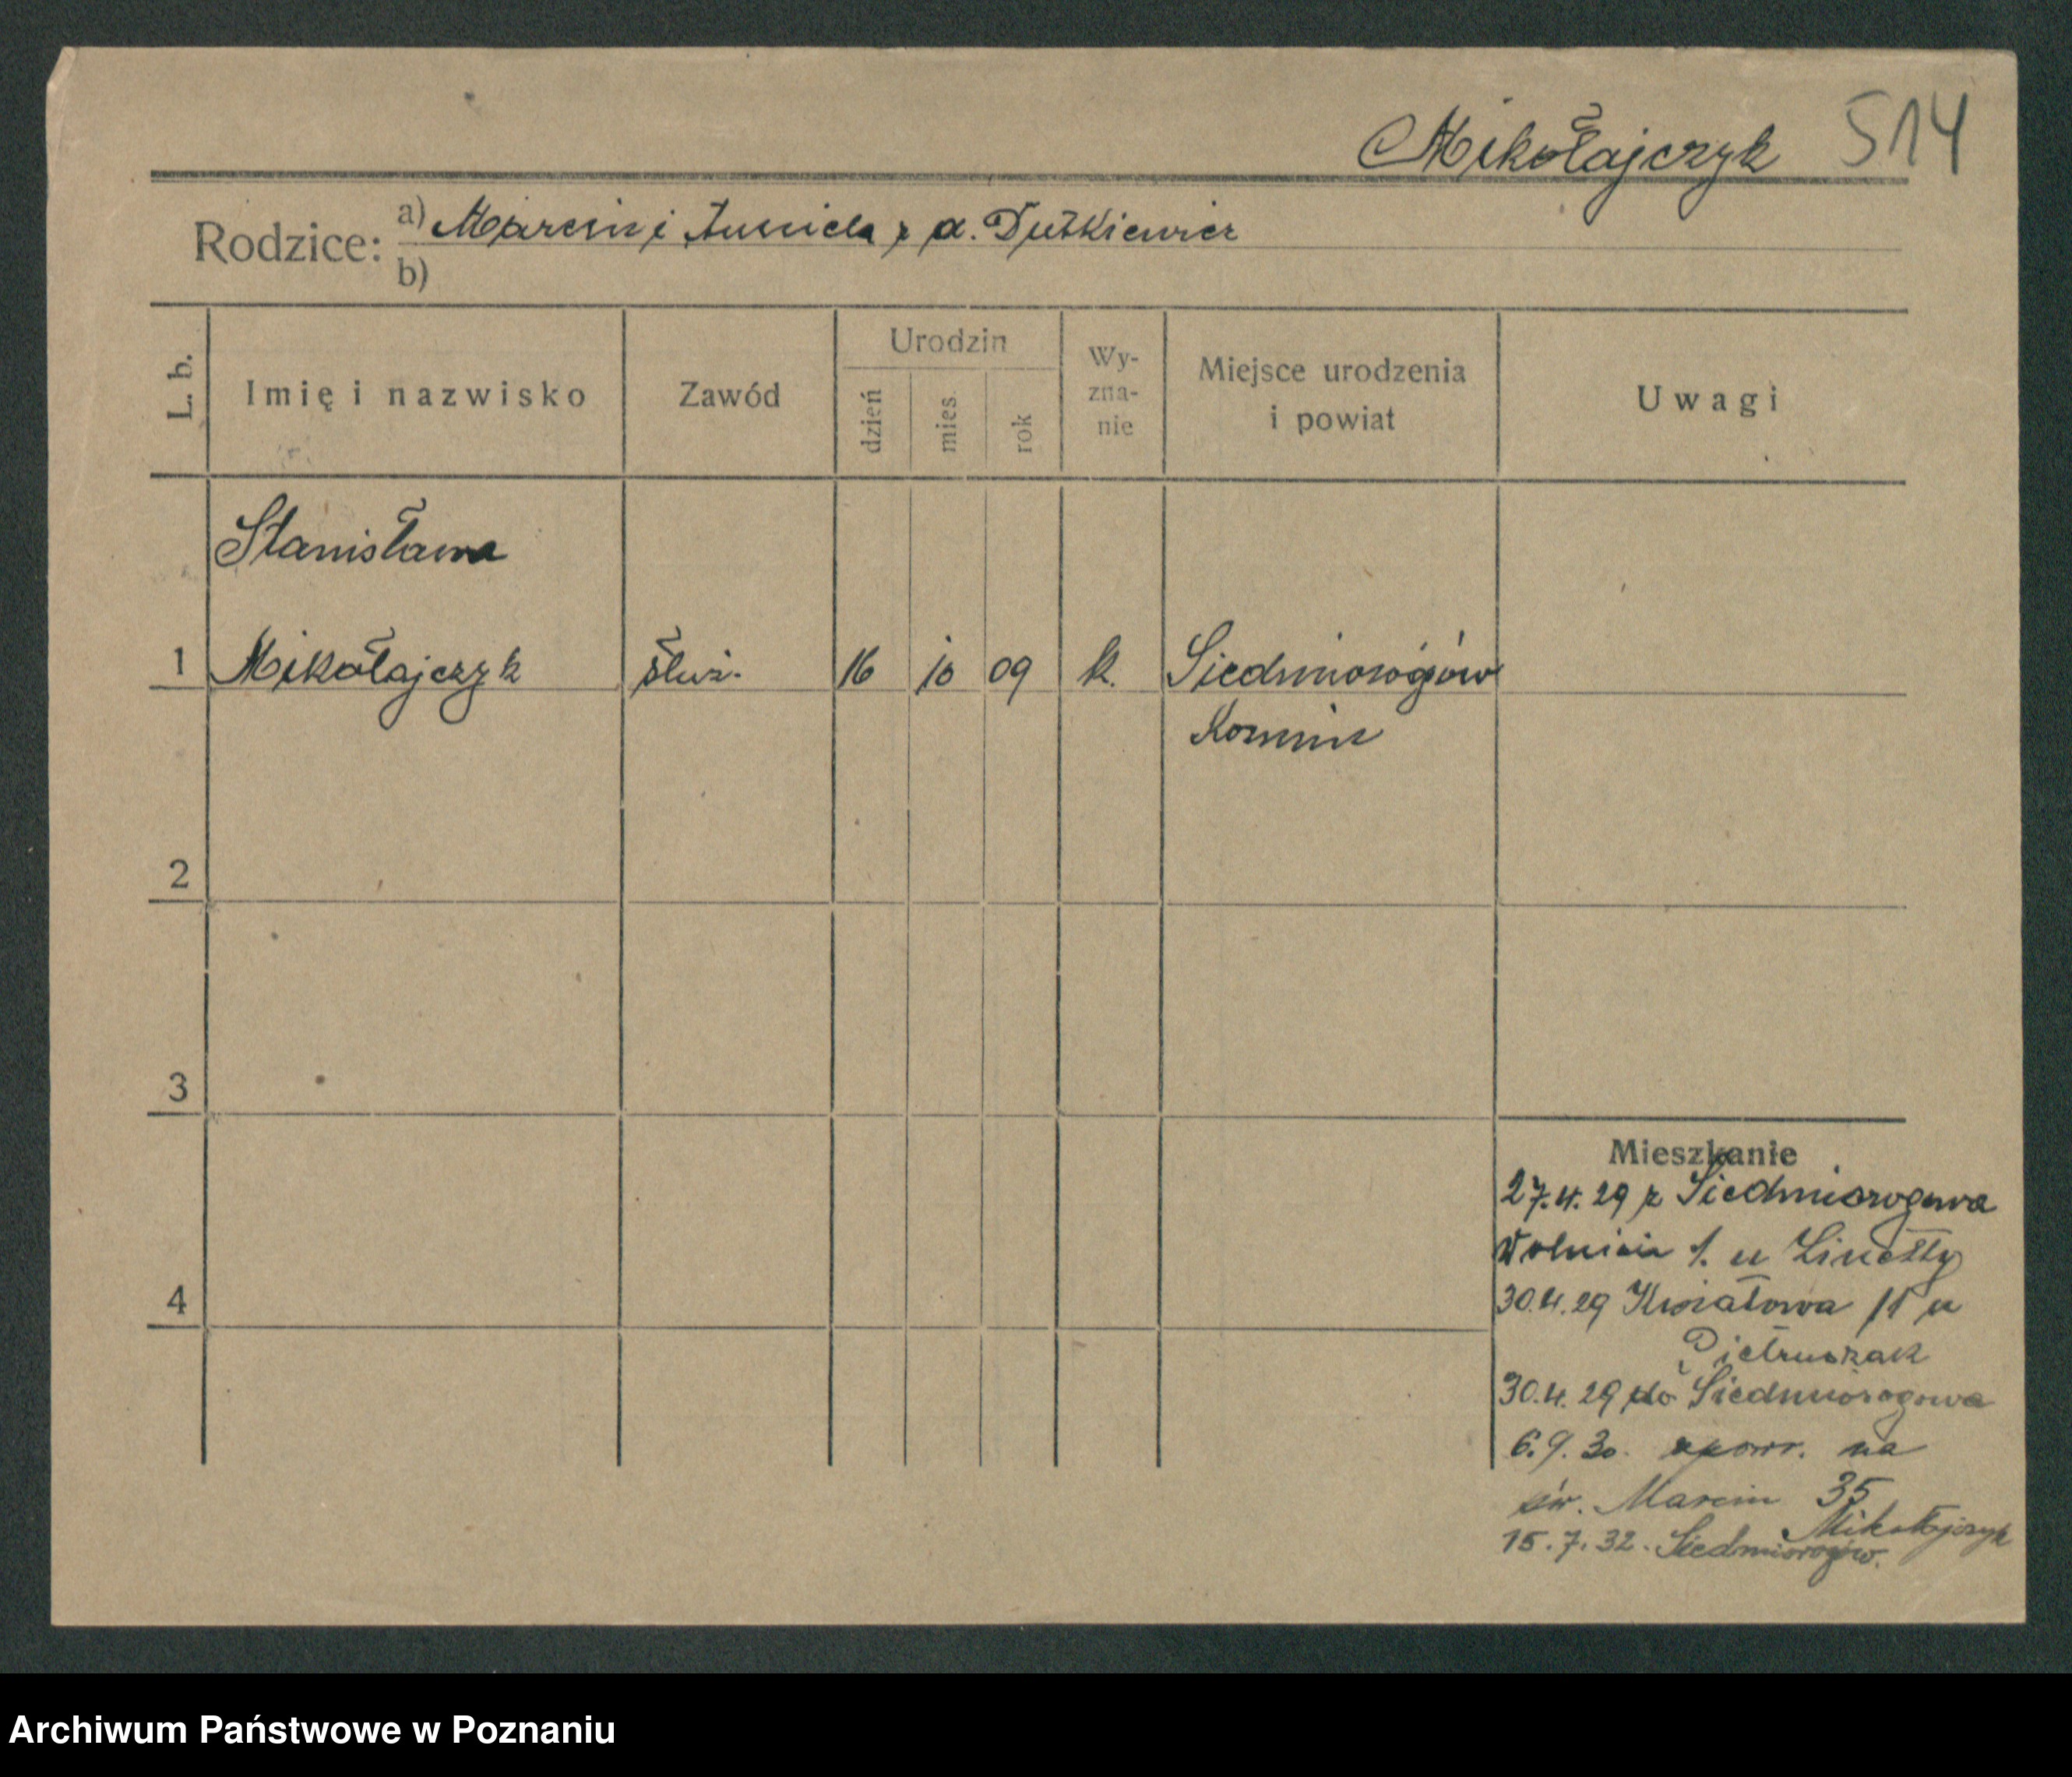 Mikołajczyk 514
Rodzice: a) Marcin i Aniela z d. Dutkiewicz
b)
L. b. Imię i nazwisko Zawód Urodzin dzień mies. rok Wy-zna-nie Miejsce urodzenia i powiat Uwagi
Stanisława
1 Mikołajczyk służ. 16 10 09 k. Siedmiorogów
2
3
4
Mieszkanie
27.4.29 z Siedmiorogowa
1. u Linetty
30.4.29 Kwiatowa 11 u
Pietruszak
30.4.29 do Siedmiorogowa
6.9.30. na
św. Marcin 35
Mikołajczyk
15.7.32. Siedmiorogów.
Archiwum Państwowe w Poznaniu